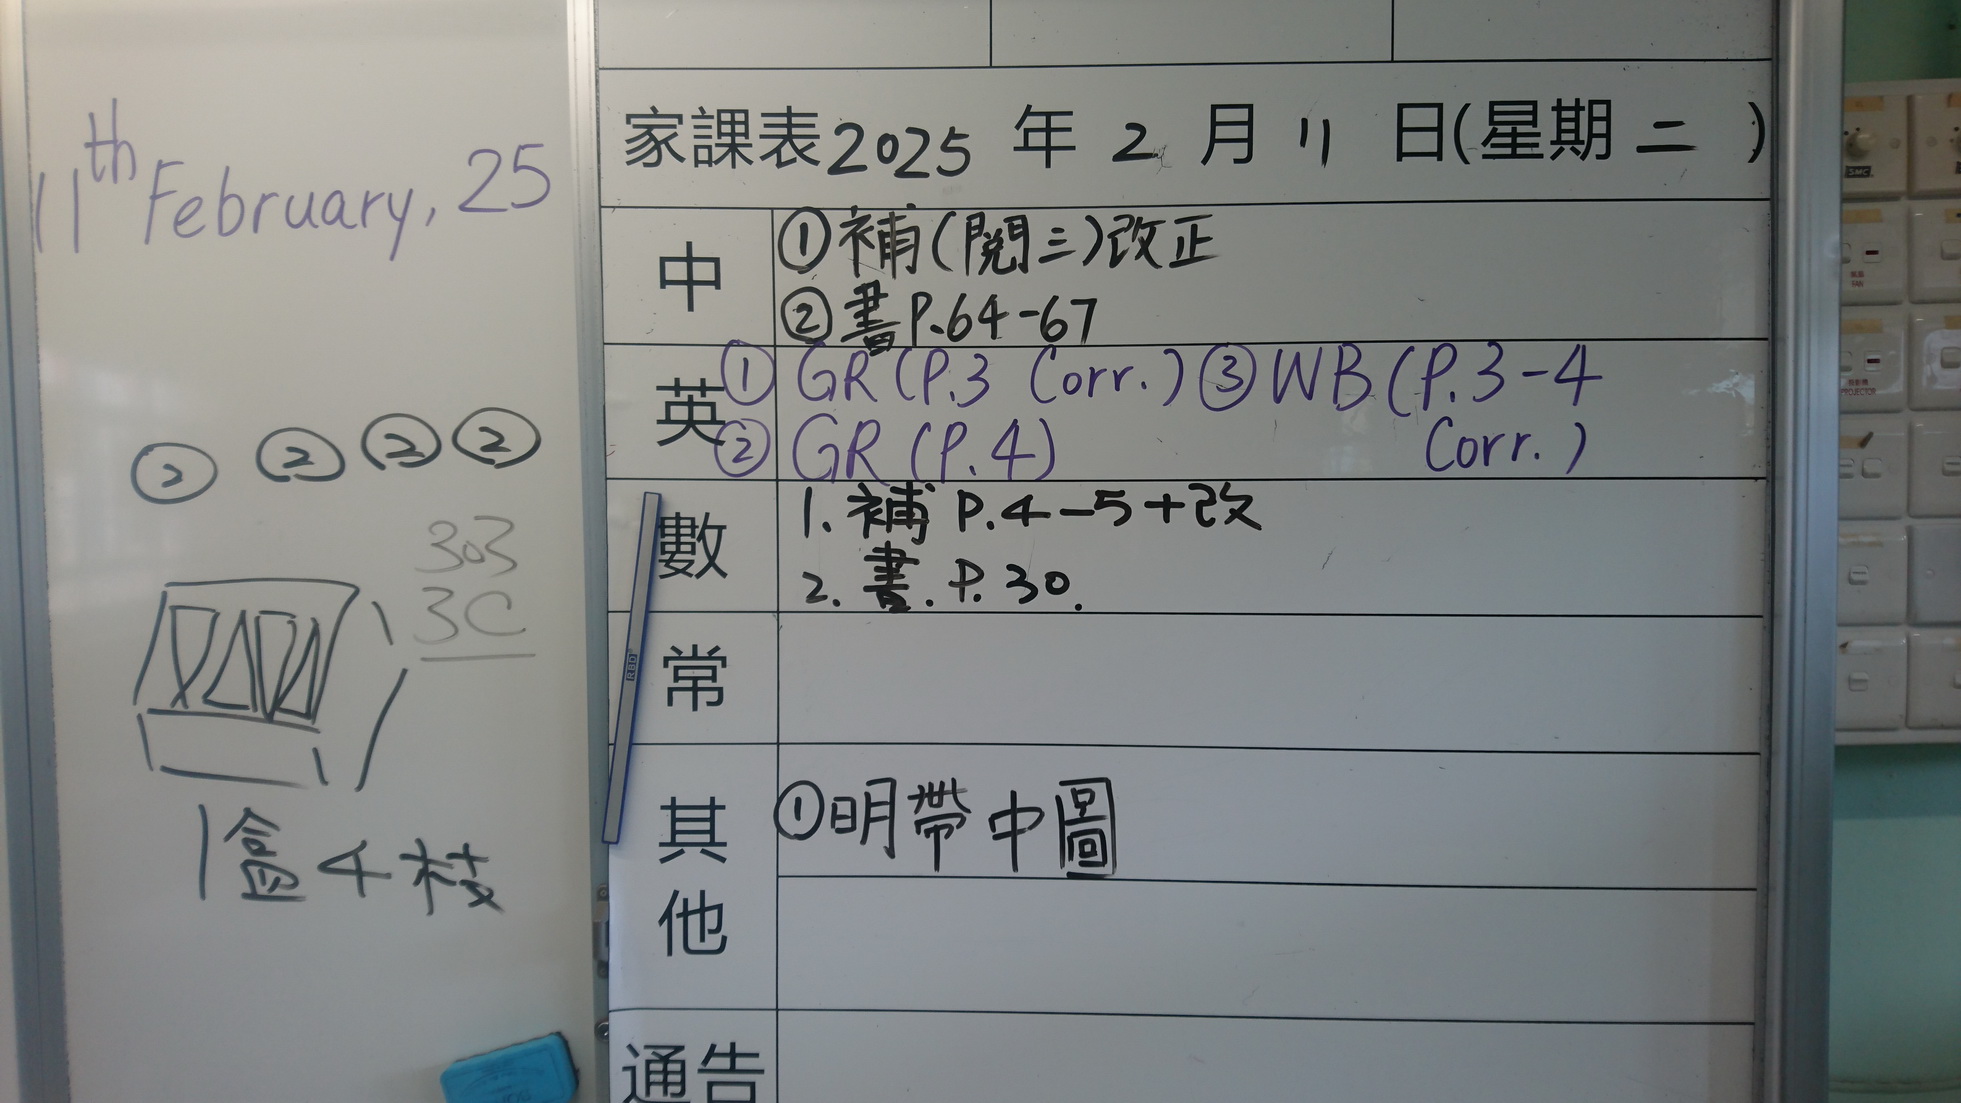 11th February, 25
② ② ② ②
303
3C
1盒4枝
家課表2025年2月11日(星期二)
中
①補(閱三)改正
②書P.64-67
英
① GR (P.3 Corr.) ③ WB (P.3-4
② GR (P.4) Corr.)
數
1. 補 P.4-5+改
2. 書. P. 30.
常
其他
①明帶中圖
通告
SMC
FAN
PROJECTOR